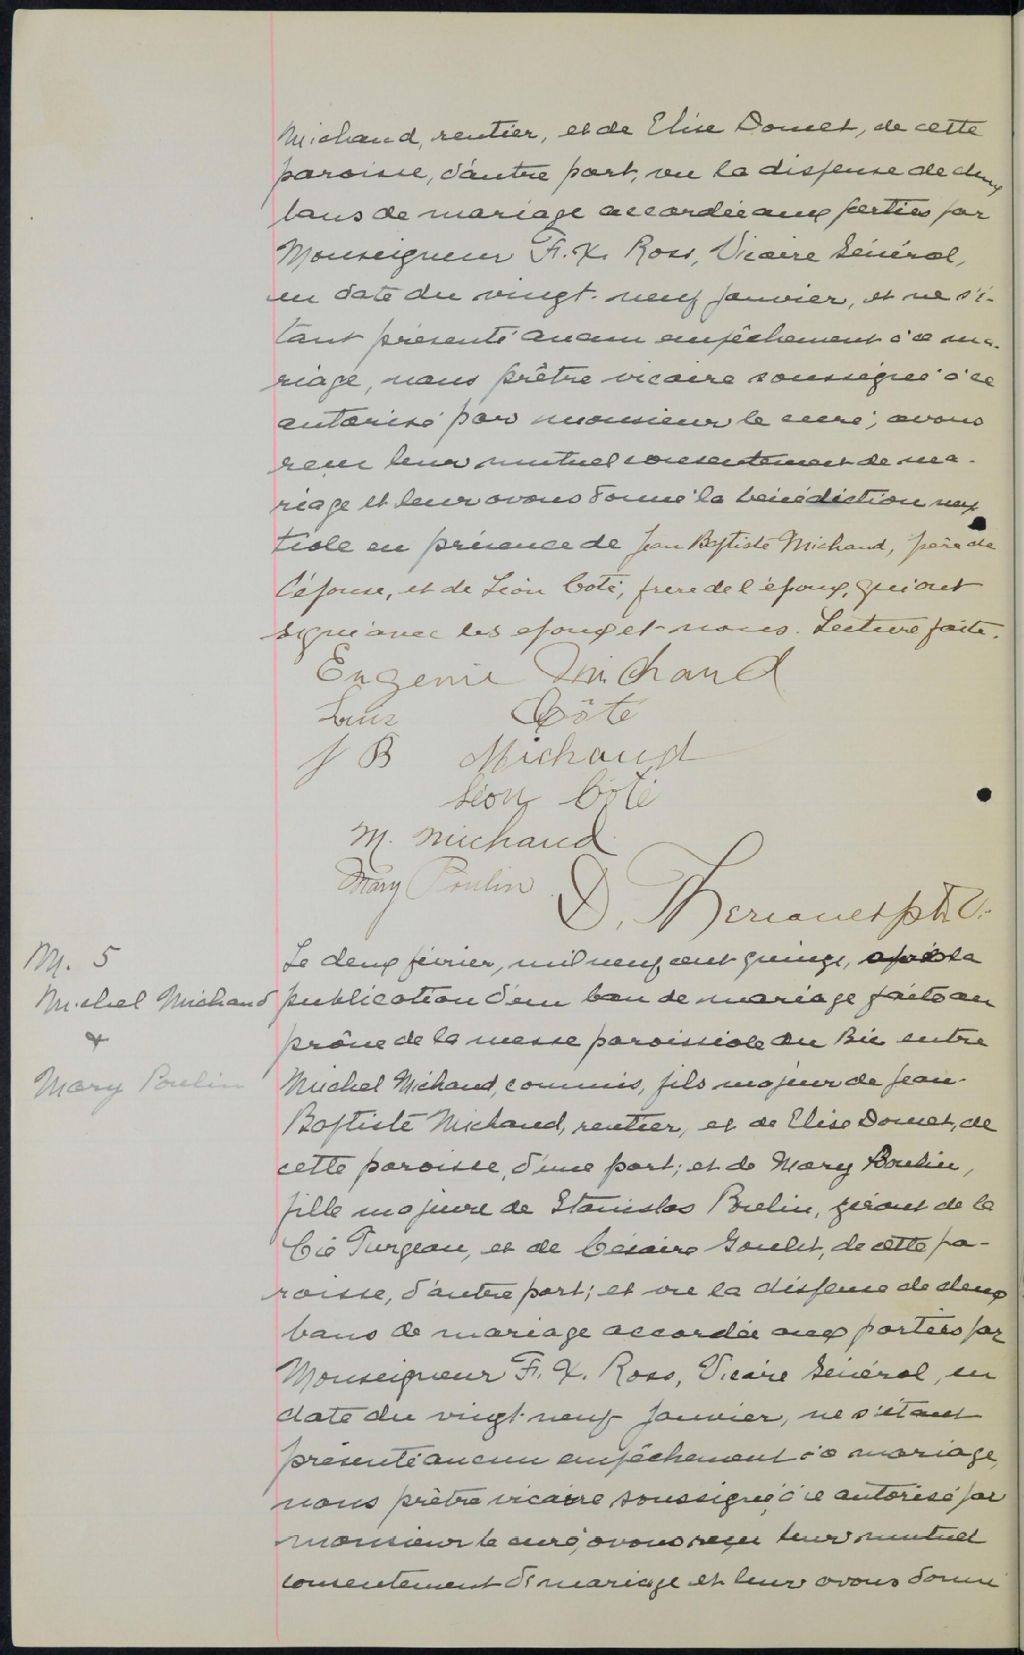 Michaud, rentier, et de Elise Doucet, de cette
paroisse, d'autre part, vu la dispense de deux
bans de mariage accordée aux parties par
Monseigneur F. X. Ross, Vicaire Général,
en date du vingt-neuf janvier, et ne s'é-
tant présenté aucun empêchement à ce ma-
riage, nous prêtre vicaire soussigné à ce
autorisé par monsieur le curé, avons
reçu leur mutuel consentement de ma-
riage et leur avons donné la bénédiction nup
tiale en présence de Jean Baptiste Michaud, père de
l'épouse, et de Léon Coté, frère de l'époux, qui ont
signé avec les epoux et nous. Lecture faite.
Eugenie Michaud
Louis Côté
J B Michaud
Léon Côté
M. Michaud
Mary Poulin
D. Theriault ptr. V.
M. 5
Michel Michaud
&
Mary Poulin
Le deux février, mil neuf cent quinze, après la
publication d'un ban de mariage faite au
prône de la messe paroissiale du Bic entre
Michel Michaud, commis, fils majeur de Jean-
Baptiste Michaud, rentier, et de Elise Doucet, de
cette paroisse, d'une part; et de Mary Poulin,
fille majeure de Stanislas Poulin, gérant de la
Cié Turgeon, et de Césaire Goulet, de cette pa-
roisse, d'autre part; et vu la dispense de deux
bans de mariage accordée aux parties par
Monseigneur F. X. Ross, Vicaire Général, en
date du vingt-neuf janvier, ne s'étant
présenté aucun empêchement à ce mariage,
nous prêtre vicaire soussigné, à ce autorisé par
monsieur le curé, avons reçu leur mutuel
consentement de mariage et leur avons donné